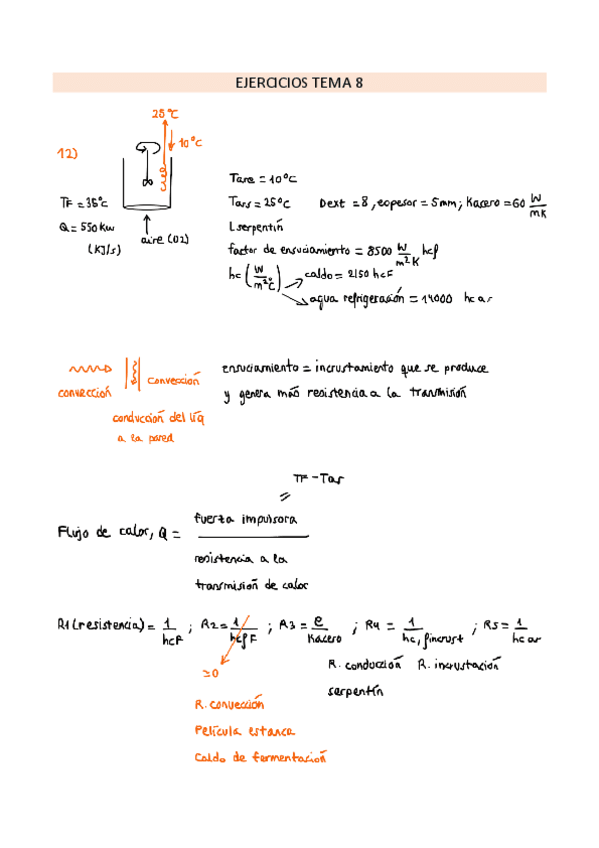 EJERCICIOS TEMA 8
25°C
10°C
12)
TF = 35°C
Q = 550 kW
(KJ/s)
aire (O2)
Tare = 10°C
Tars = 25°C Dext = 8, eopesor = 5mm; Kacero = 60 W/mK
L serpentín
factor de ensuciamiento = 8500 W/m²K hcf
hc (W/m²°C) caldo = 2150 hcF
agua refrigeración = 14000 hc ar
convección
convección
conducción del líq
a la pared
ensuciamiento = incrustamiento que se produce
y genera más resistencia a la transmisión
TF - Tar
=
Flujo de calor, Q = fuerza impulsora
resistencia a la
transmisión de calor
R1 (resistencia) = 1/hcF ; R2 = 1/hcf F ; R3 = e/Kacero ; R4 = 1/hc, f incrust ; R5 = 1/hc ar
≥0
R. conducción R. incrustación
serpentín
R. convección
Película estanca
Caldo de fermentación